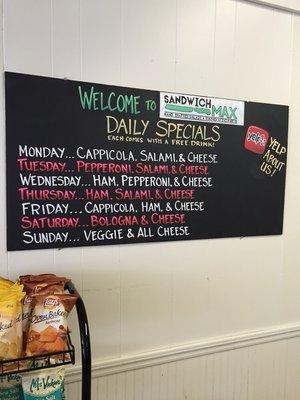 WELCOME TO
SANDWICH
MAX
DAILY SPECIALS
EACH COMES WITH A FREE DRINK!
MONDAY... CAPPICOLA, SALAMI, & CHEESE
TUESDAY... PEPPERONI, SALAMI, & CHEESE
WEDNESDAY... HAM, PEPPERONI, & CHEESE
THURSDAY... HAM, SALAMI, & CHEESE
FRIDAY... CAPPICOLA, HAM, & CHEESE
SATURDAY... BOLOGNA & CHEESE
SUNDAY... VEGGIE & ALL CHEESE
yelp
YELP
ABOUT
US!
Lay's
Oven Baked
Baked
Miss Vickie's